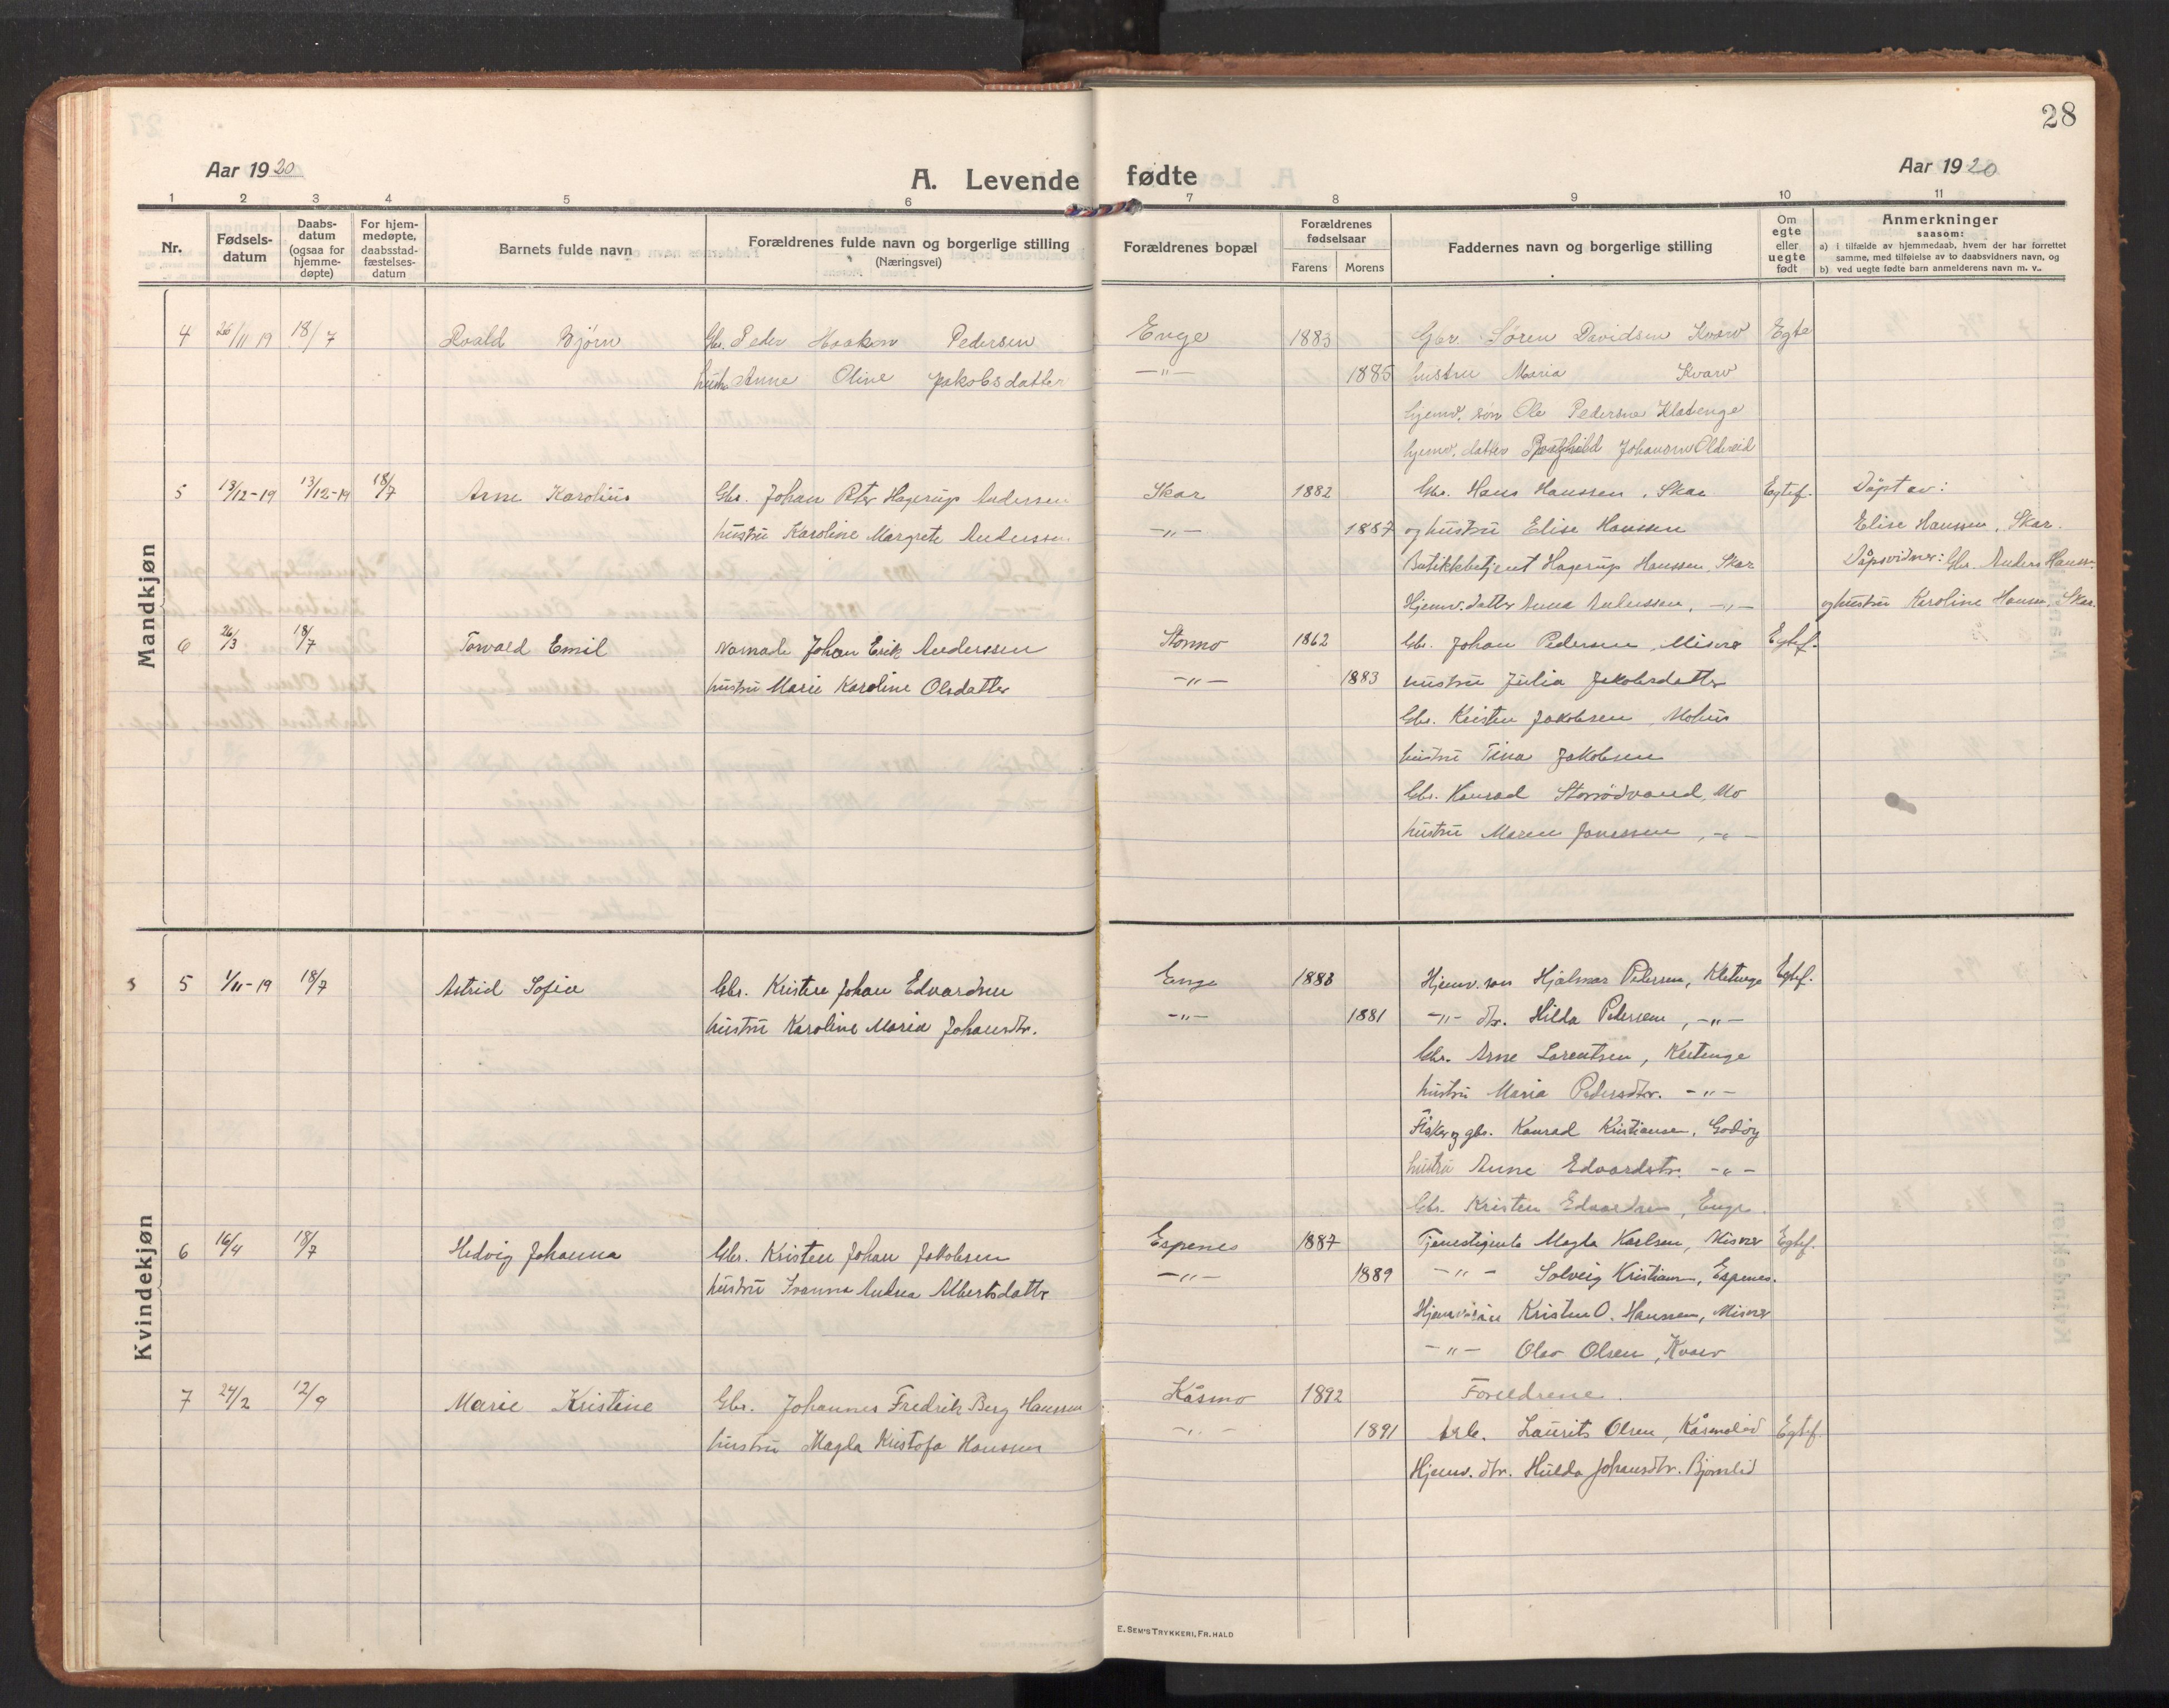 28
Aar 1920
A. Levende fødte
Aar 1920
1 2 3 4 5 6 7 8 9 10 11
Nr.
Fødsels-
datum
Daabs-
datum
(ogsaa for
hjemme-
døpte)
For hjem-
medøpte,
daabsstad-
fæstelses-
datum
Barnets fulde navn
Forældrenes fulde navn og borgerlige stilling
(Næringsvei)
Forældrenes bopæl
Forældrenes
fødselsaar
Farens Morens
Faddernes navn og borgerlige stilling
Om
egte
eller
uegte
født
Anmerkninger
saasom:
a) i tilfælde av hjemmedaab, hvem der har forrettet
samme, med tilføielse av to daabsvidners navn, og
b) ved uegte fødte barn anmelderens navn m. v..
Mandkjøn
4 26/11 19 18/7 Roald Bjørn Gbr. Peder Haakon Pedersen Enge 1883 Gbr. Søren Davidsen Kvarv Egte
hustru Anne Oline Jakobsdatter -"- 1885 hustru Maria Kvarv
hjemv. søn Ole Pedersen
hjemv. datter Johansen Oldereid
5 13/12-19 13/12-19 18/7 Arne Karolius Gbr. Johan Peter Hagerup Anderssen Skar 1882 Gbr. Hans Hanssen, Skar Egtef. Døpt av:
hustru Karoline Margrete Anderssen -"- 1887 og hustru Elise Hanssen Elise Hanssen, Skar.
Butikkbetjent Hagerup Hanssen, Skar Dåpsvidner: Gbr. Anders Hanssen
Hjemv. datter Anna Anderssen, -"- og hustru Karoline Hansen, Skar.
6 26/3 18/7 Torvald Emil Nomade Johan Erik Anderssen Stormo 1862 Gbr. Johan Pedersen, Misvær Egtef.
hustru Marie Karoline Olsdatter -"- 1883 hustru Julia Jakobsdatter
Gbr. Kristen Jakobsen, Mohus
hustru Tina Jakobsen
Gbr. Konrad Storrødvand, Mo
hustru Maren Jonassen, -"-
Kvindekjøn
5 1/11-19 18/7 Astrid Sofie Gbr. Kristen Johan Edvardsen Enge 1883 Hjemv. søn Hjalmar Pedersen, Kletenge Egtef.
hustru Karoline Maria Johansdtr. -"- 1881 -"- dtr. Hilda Pedersen, -"-
Gbr. Arne Lorentsen, Kletenge
hustru Maria Pedersdtr. -"-
Fisker og gbr. Konrad Kristiansen, Godøy
hustru Anne Edvardsdtr. -"-
Gbr. Kristen Edvardsen, Enge.
6 16/4 18/7 Hedvig Johanna Gbr. Kristen Johan Jakobsen Espenes 1887 Tjenestejente Magda Karlsen, Misvær Egtef.
hustru Ivanna Andrea Albertsdatter -"- 1889 -"- Solveig Kristiansen, Espenes.
Hjemv. søn Kristen O. Hanssen, Misvær
-"- Olav Olsen, Kvarv
7 24/2 12/9 Marie Kristine Gbr. Johannes Fredrik Berg Hanssen Kåsmo 1892 Foreldrene.
hustru Magda Kristofa Hanssen -"- 1891 Arb. Laurits Olsen, Kåsmolid Egtef.
Hjemv. dtr. Hulda Johansdtr. Bjørnlid
E. SEM'S TRYKKERI, FR.HALD